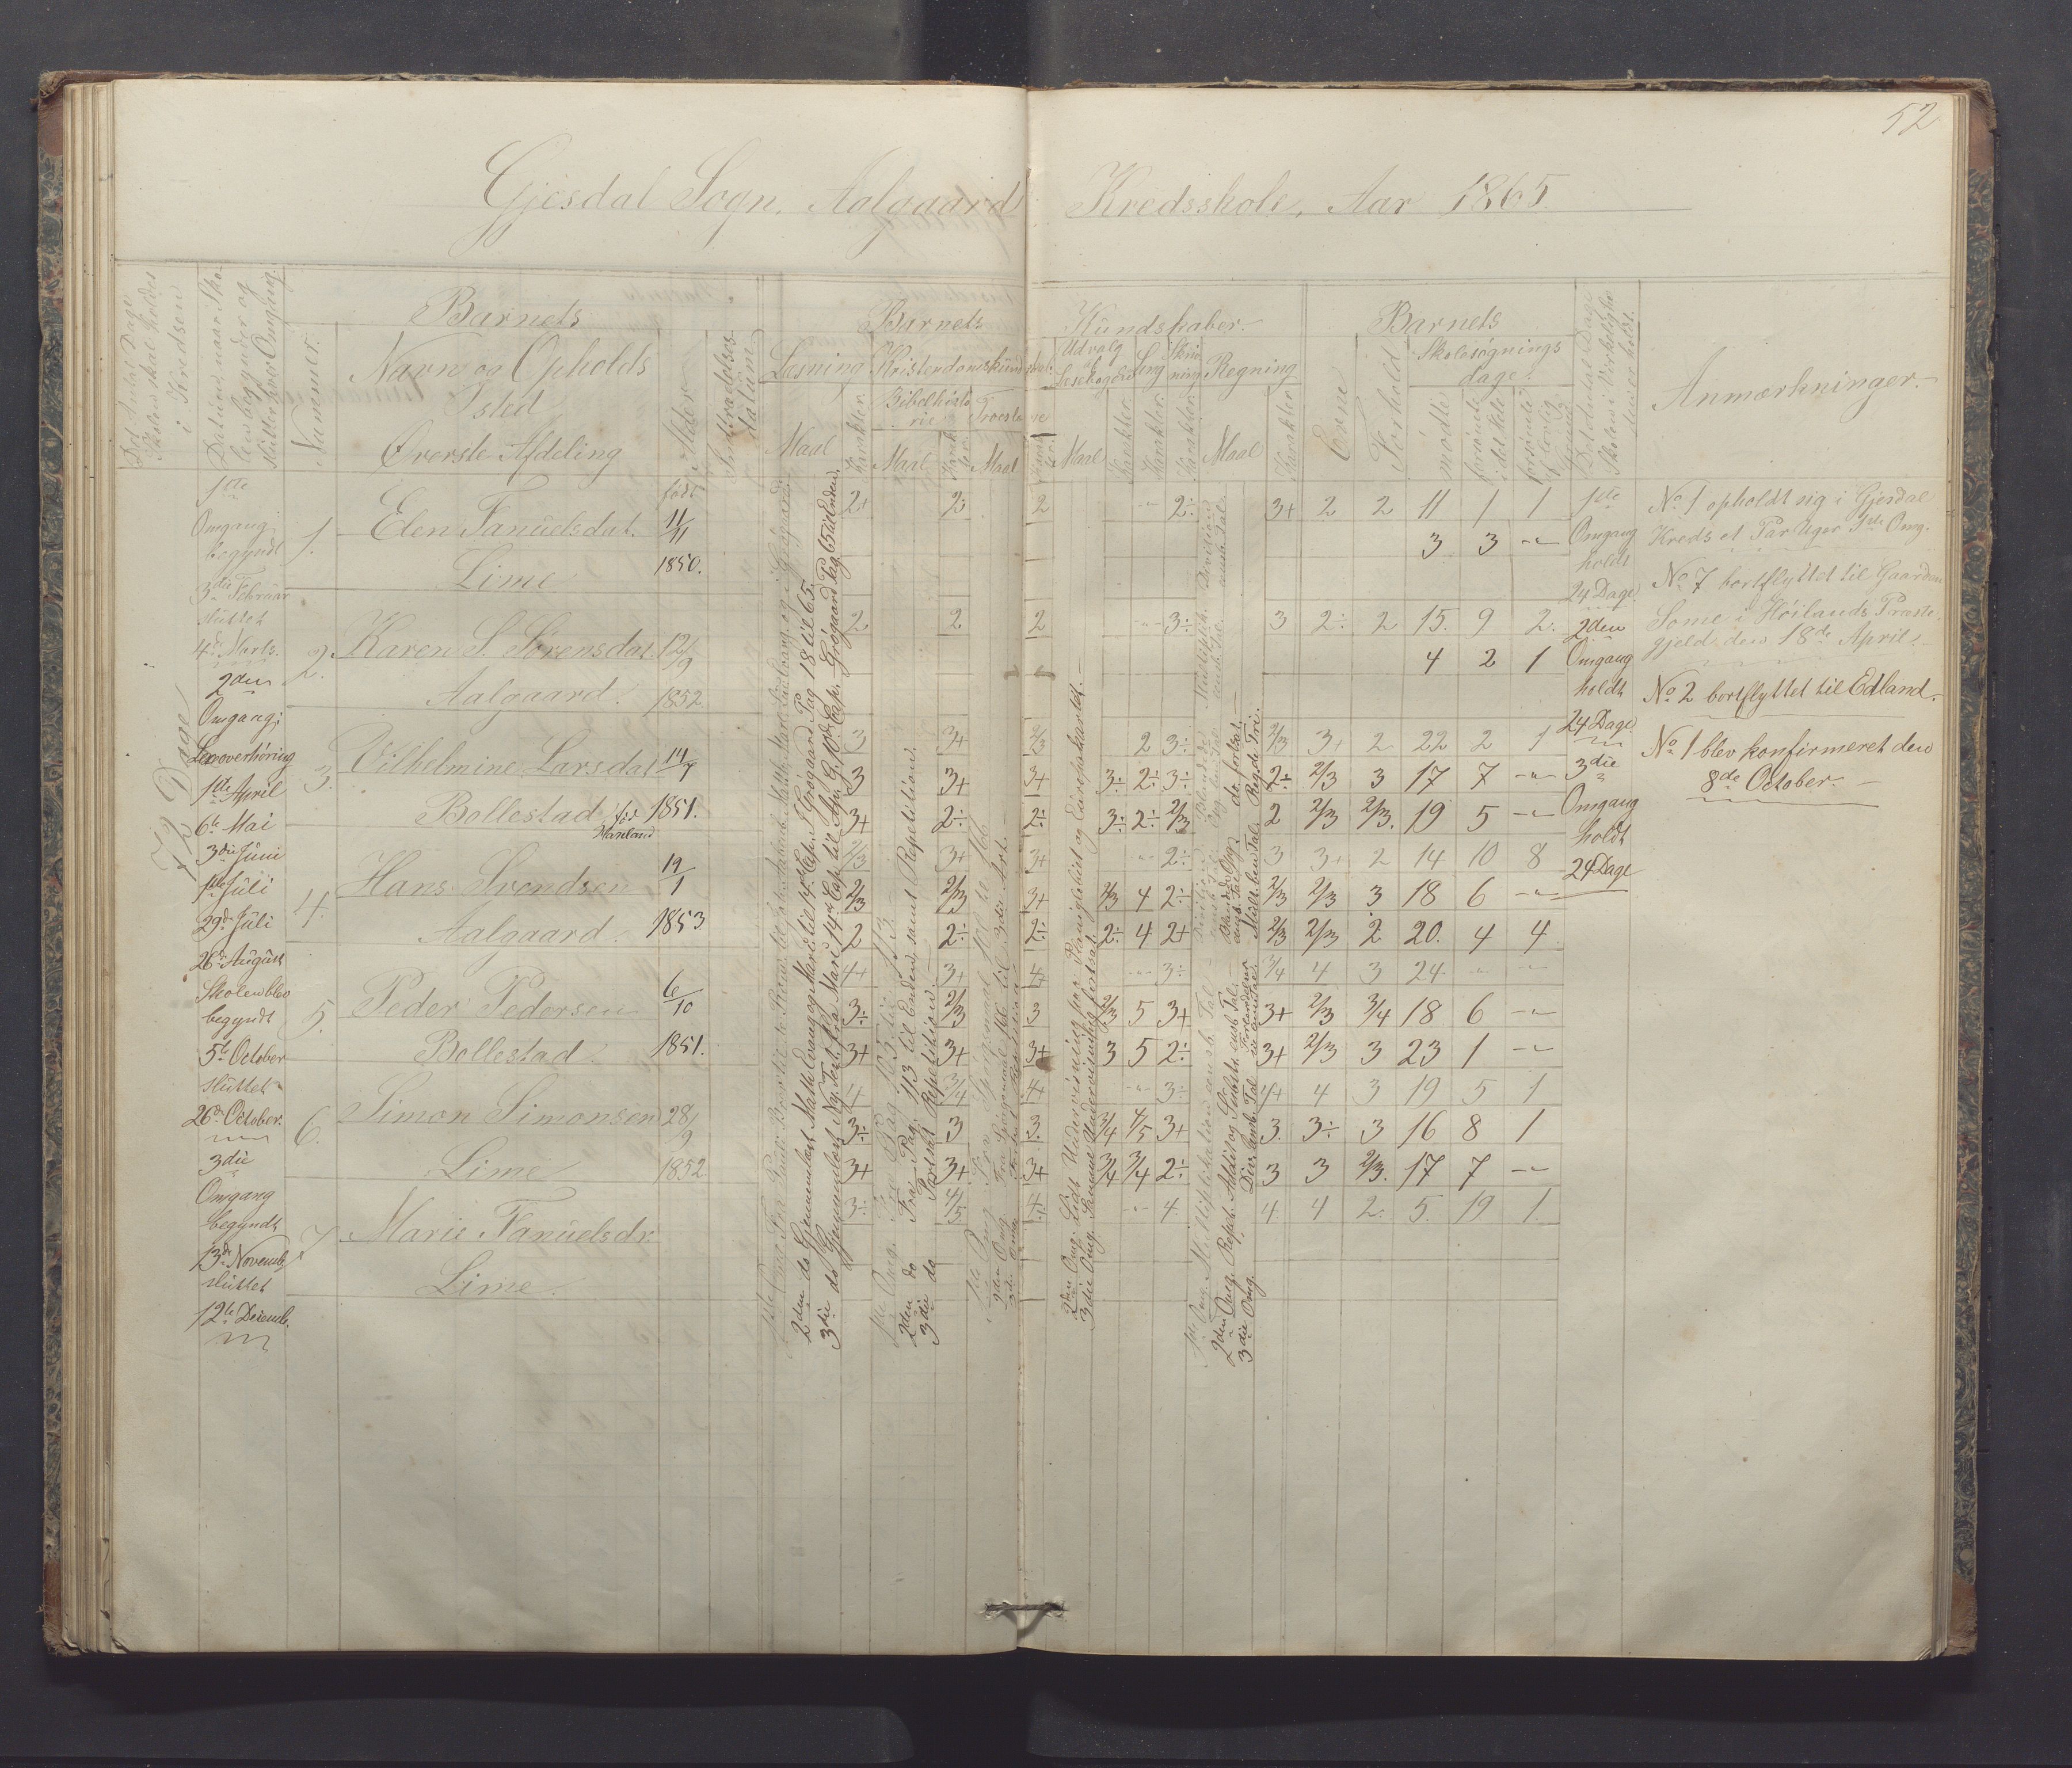 52
Gjesdal Sogn, Aalgaard Kredsskole, Aar 1865.
Det Antal Dage Skolen skal holdes i Kredsen
Datum naar Skolen begynder og slutter hver Omgang.
Nummer.
Barnets
Navn og Opholdssted
Øverste Afdeling
Alder
Indtrædelses datum
Barnets Kundskaber.
Læsning
Maal
Karakter.
Kristendomskundskab.
Bibelhistorie
Maal
Karakter
Troeslære
Maal
Karakter
Udvalg af Læsebogen
Maal
Karakter
Sang
Karakter.
Skrivning
Karakter.
Regning
Maal
Karakter
Barnets
Evne
Forhold
Skolesøgnings dage.
mødte
forsømte i det Hele
forsømte af lovlig Grund
Det Antal Dage Skolen i Virkeligheden er holdt.
Anmærkninger.
72 Dage
1ste
Omgang
begyndt
3die Februar
sluttet
4de Marts.
2den
Omgang;
Læxoverhøring
1ste April
6te Mai
3die Juni
1ste Juli
29de Juli
26de August
Skolen blev
begyndt
5te October
sluttet
26de October.
3die
Omgang
begyndt
13de Novemb.
sluttet
12te Decemb.
1. Elen Tanuelsdat. født 11/11
Lime 1850.
2. Karen S. Sørensdat. 12/9
Aalgaard. 1852
3. Vilhelmine Larsdat 14/7
Bollestad 1851.
4. Hans Svendsen 19/1
Aalgaard. 1853
5. Peder Pedersen 6/10
Bollestad. 1851.
6. Simon Simonsen 28/9
Lime 1852
7. Marie Tanuelsdr.
Lime.
2den do Gjennemlæst Math. Evang. og Marc. til 14de Cap. i Grøgaard Pag 18 til 65.
3die do Gjennemlæst i Ny. Test. fra Marc. 14de Cap til Ap. G. 10de Cap. Grøgaard Pag 65 til Enden.
2den do Fra Pag. 113 til Enden samt Repetition.
3die do Portsat Repetition.
2den Omg. Lidt Undervisning paa Planigloberiet og Europakartet.
3die Omg. Samme Undervisning fortsat.
2+ 2÷ 2 -"- 2÷ 3+ 2 2 11 1 1
3 3 -"-
2 2 2 -"- 3÷ 3 2÷ 2 15. 9 2.
4 2 1
3 3+ 2/3 2 3÷ 2/3 3+ 2 22 2 1
3 3+ 3+ 3÷ 2÷ 3÷ 2÷ 2/3 3 17 7 -"-
3+ 2÷ 2÷ 3÷ 2÷ 2/3 2 2/3 2/3. 19 5 -"-
2/3 3+ 3+ -"- 2÷ 3 3+ 2 14 10 8
2/3 2/3 3+ 2/3 4 2÷ 2/3 2/3 3 18 6 -"-
2 2÷ 2÷ 2÷ 4 2+ 2/3 2/3 2 20. 4 4
4+ 3+ 4 -"- 3÷ 3/4 4 3 24 -"- -"-
3÷ 2/3 3 2/3 5 3+ 3+ 2/3 3/4 18 6 -"-
3+ 3+ 3+ 3 5 2÷ 3+ 2/3 3 23 1 -"-
4 3/4 4+ -"- 3÷ 4+ 4 3 19 5 1
3÷ 3 3. 3/4 4/5 3+ 3. 3÷ 3 16 8 1
3+ 3+ 3+ 3/4 3/4 2÷ 3 3 2/3. 17 7 -"-
3÷ 4/5 4÷ -"- 4 4. 4 2. 5. 19 1.
1ste
Omgang
holdt
24 Dage.
2den
Omgang
holdt
24 Dage
3die
Omgang
holdt
24 Dage
No 1 opholdt sig i Gjesdal
Kreds et Par Uger 1ste Omg.
No 7 bortflyttet til Gaarden
Some i Høilands Præste-
gjeld den 18de April.
No 2 bortflyttet til Edland.
No 1 blev konfirmeret den
8de October.